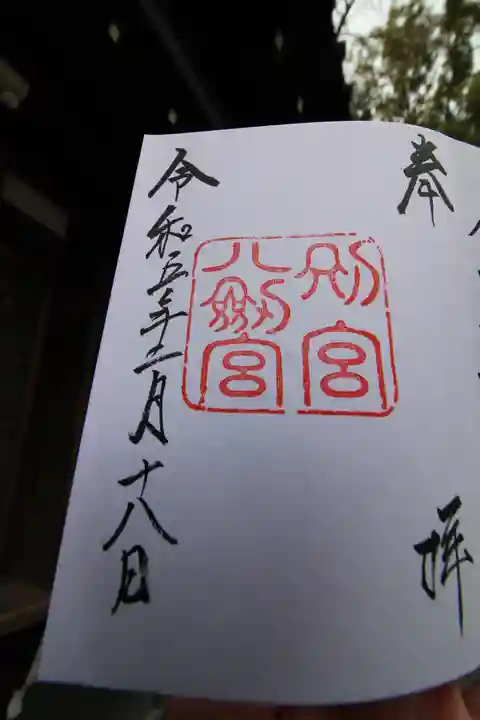 奉拝
別宮
八剱宮
令和五年二月十八日